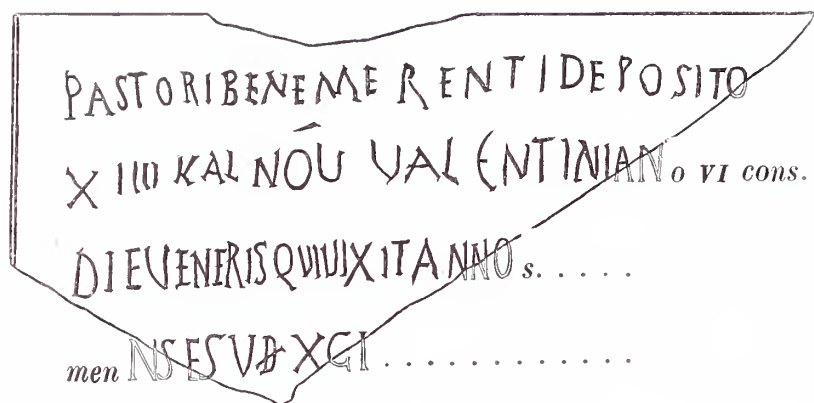 PASTORIBENEMERENTIDEPOSITO
XIIII KAL NÓU UALENTINIANo VI cons.
DIEUENERISQUIUIXITANNOs. . . . .
men NSESVĐ XGI . . . . . . . . . . . . .